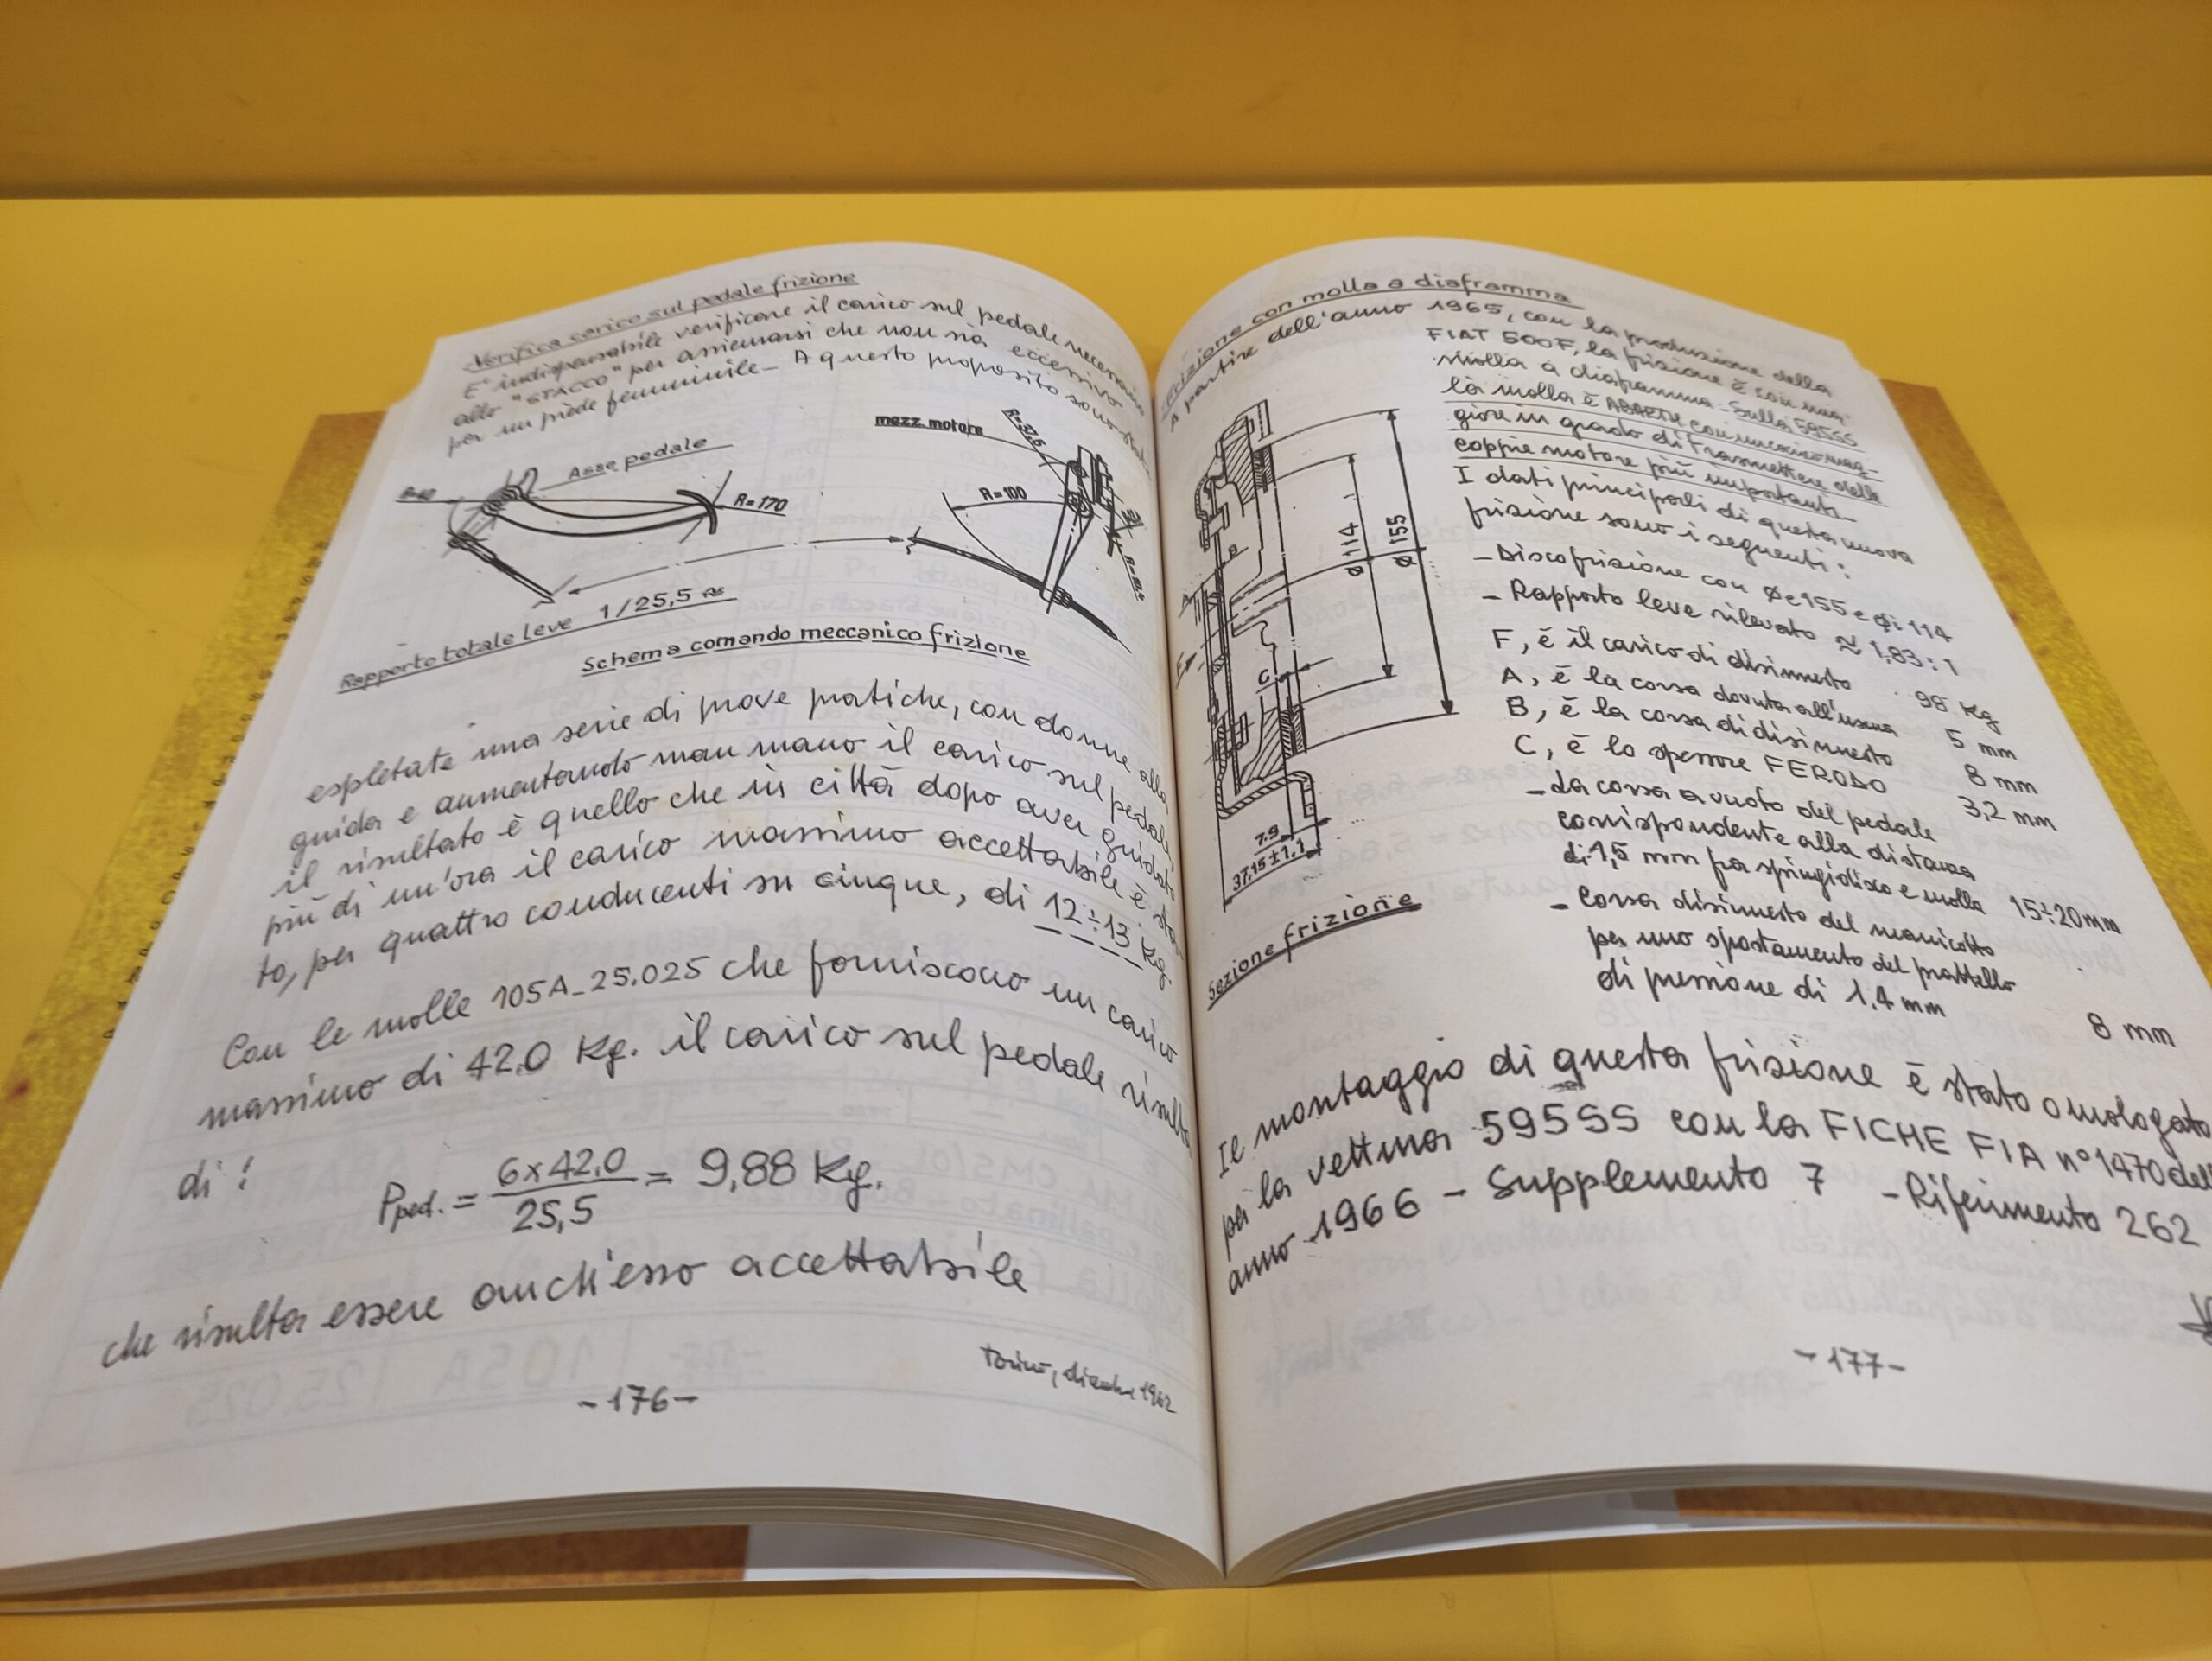 Verifica carico sul pedale frizione
E' indispensabile verificare il carico sul pedale necessario
allo "STACCO" per assicurarsi che non sia eccessivo
per un piede femminile - A questo proposito sono state
mezz. motore
Asse pedale
R=170
R=100
Rapporto totale leve 1/25,5 ≈
Schema comando meccanico frizione
espletate una serie di prove pratiche, con donne alla
guida e aumentando man mano il carico sul pedale,
il risultato è quello che in città dopo aver guidato
più di un'ora il carico massimo accettabile è sta
to, per quattro conducenti su cinque, di 12÷13 Kg.
Con le molle 105A_25.025 che forniscono un carico
massimo di 42,0 Kg. il carico sul pedale risulta
di:
Pped. = 6x42,0 / 25,5 = 9,88 Kg.
che risulta essere anch'esso accettabile
Torino, dicembre 1962
-176-
Frizione con molla a diaframma
A partire dell'anno 1965, con la produzione della
FIAT 500F, la frizione è con una
molla a diaframma - Sulla 595SS
la molla è ABARTH con un carico mag-
giore in grado di trasmettere delle
coppie motore più importanti -
I dati principali di questa nuova
frizione sono i seguenti:
- Disco frizione con øe 155 e øi 114
- Rapporto leve rilevato ≈ 1,83:1
F, è il carico di disinnesto 98 Kg
A, è la corsa dovuta all'usura 5 mm
B, è la corsa di disinnesto 8 mm
C, è lo spessore FERODO 3,2 mm
- La corsa a vuoto del pedale
corrispondente alla distanza
di 1,5 mm fra spingidisco e molla 15÷20mm
- Corsa disinnesto del manicotto
per uno spostamento del piattello
di pressione di 1,4 mm 8 mm
B
A
F
C
ø114
ø155
7.9
37,15±1,1
Sezione frizione
Il montaggio di questa frizione è stato omologato
per la vettura 595SS con la FICHE FIA n°1470 dell
anno 1966 - Supplemento 7 - Riferimento 262
-177-